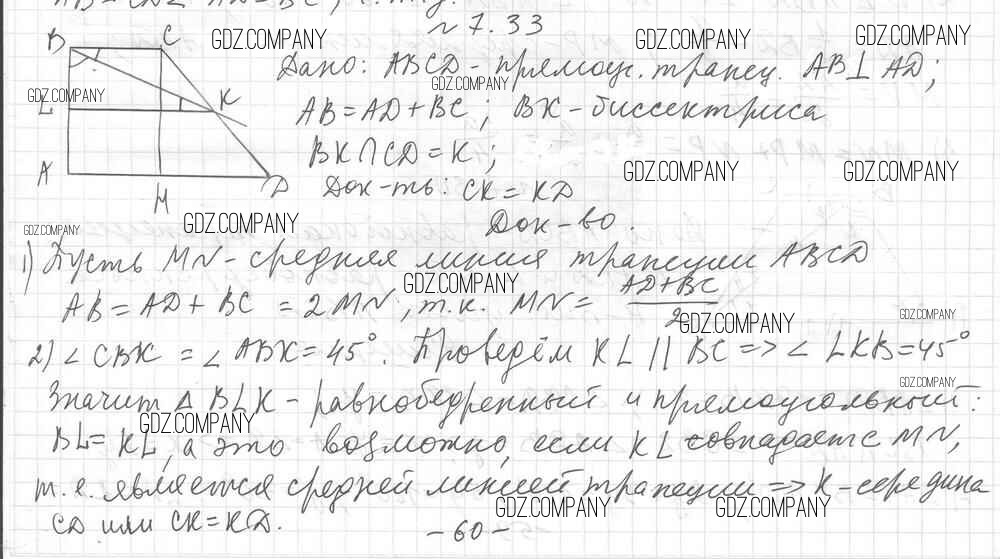 № 7.33
B C GDZ.COMPANY GDZ.COMPANY GDZ.COMPANY
Дано: ABCD - прямоуг. трапец. AB ⊥ AD;
GDZ.COMPANY GDZ.COMPANY
L K AB = AD + BC; BK - биссектриса
BK ∩ CD = K;
A D GDZ.COMPANY GDZ.COMPANY
M Док-ть: CK = KD
GDZ.COMPANY GDZ.COMPANY Док-во.
1) Пусть MN - средняя линия трапеции ABCD
GDZ.COMPANY
AB = AD + BC = 2MN, т.к. MN = AD+BC / 2
GDZ.COMPANY GDZ.COMPANY
2) ∠ CBK = ∠ ABK = 45°. Проведём KL || BC => ∠ LKB = 45°
GDZ.COMPANY
Значит Δ BLK - равнобедренный и прямоугольный:
GDZ.COMPANY
BL = KL, а это возможно, если KL совпадает с MN,
т.е. является средней линией трапеции => K - середина
GDZ.COMPANY GDZ.COMPANY
CD или CK = KD.
- 60 -